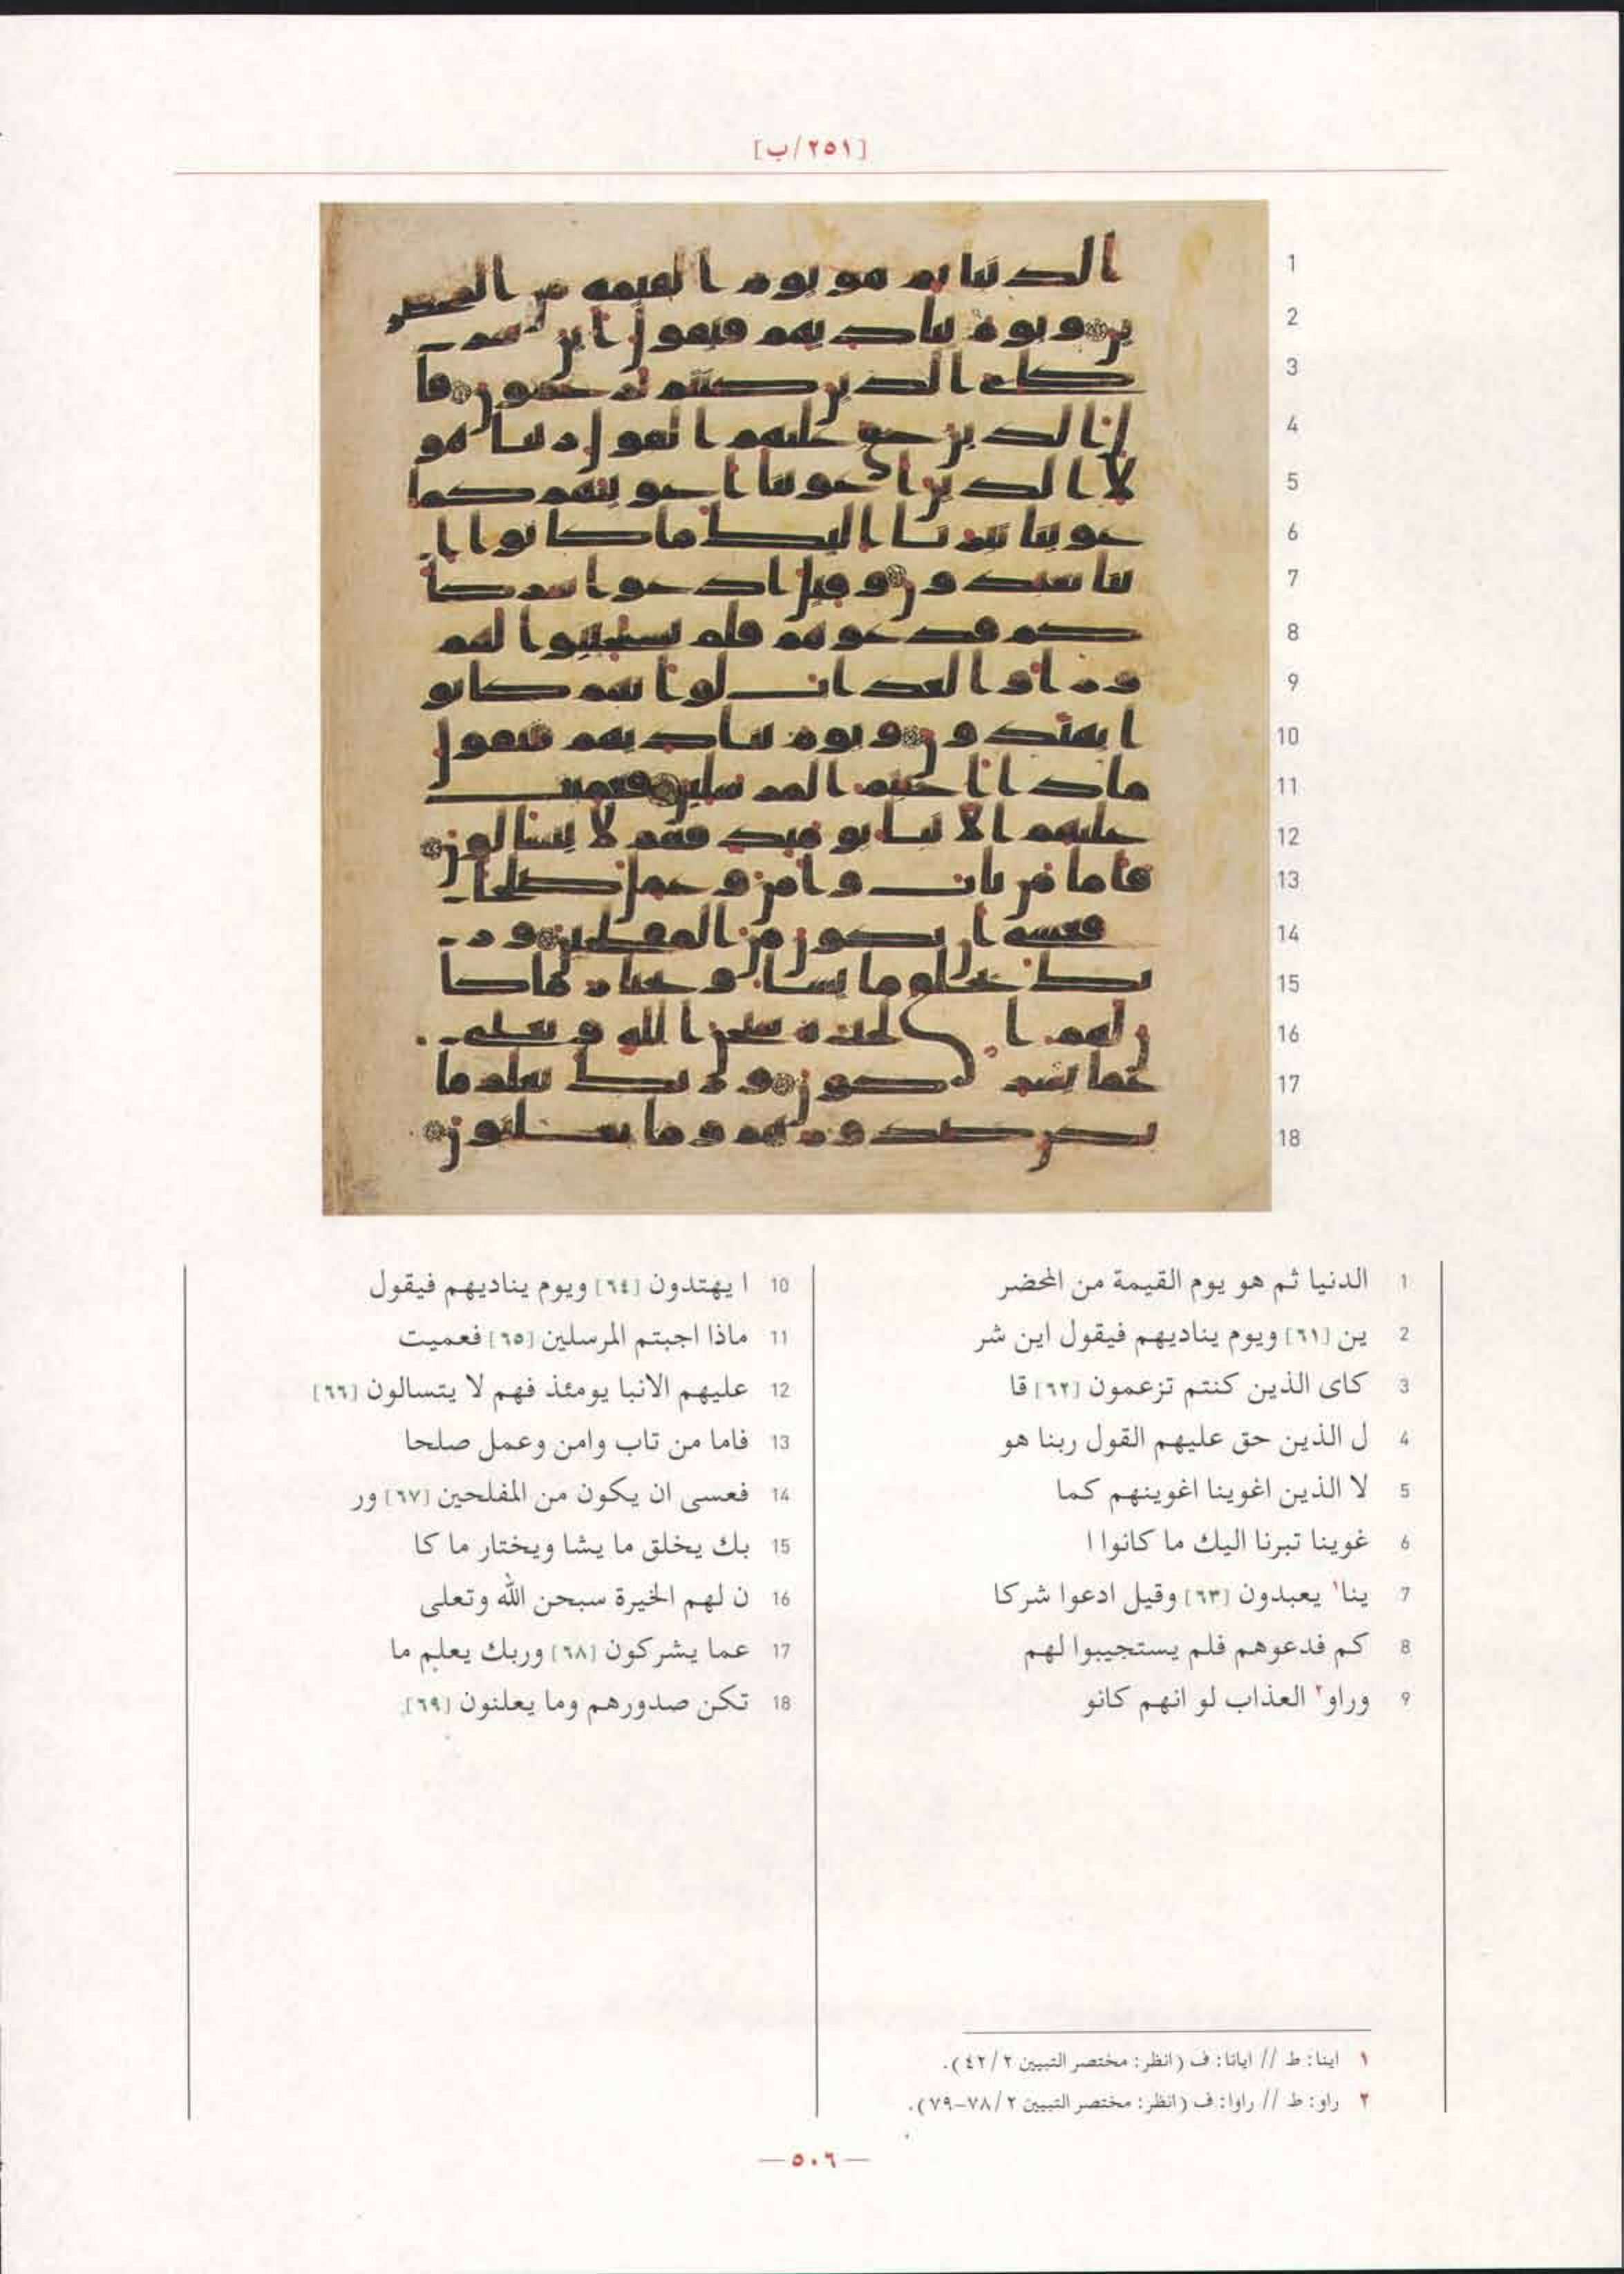 [٢٥١/ب]
1
2
3
4
5
6
7
8
9
10
11
12
13
14
15
16
17
18
1 الدنيا ثم هو يوم القيمة من المحضر
2 ين [٦١] ويوم يناديهم فيقول اين شر
3 كاى الذين كنتم تزعمون [٦٢] قا
4 ل الذين حق عليهم القول ربنا هو
5 لا الذين اغوينا اغوينهم كما
6 غوينا تبرنا اليك ما كانوا ا
7 ينا١ يعبدون [٦٣] وقيل ادعوا شركا
8 كم فدعوهم فلم يستجيبوا لهم
9 وراو٢ العذاب لو انهم كانو
10 ا يهتدون [٦٤] ويوم يناديهم فيقول
11 ماذا اجبتم المرسلين [٦٥] فعميت
12 عليهم الانبا يومئذ فهم لا يتسالون [٦٦]
13 فاما من تاب وامن وعمل صلحا
14 فعسى ان يكون من المفلحين [٦٧] ور
15 بك يخلق ما يشا ويختار ما كا
16 ن لهم الخيرة سبحن الله وتعلى
17 عما يشركون [٦٨] وربك يعلم ما
18 تكن صدورهم وما يعلنون [٦٩]
١ اينا: ط // ايانا: ف (انظر: مختصر التبيين ٢/ ٤٢).
٢ راو: ط // راوا: ف (انظر: مختصر التبيين ٢/ ٧٨-٧٩).
— ٥٠٦ —